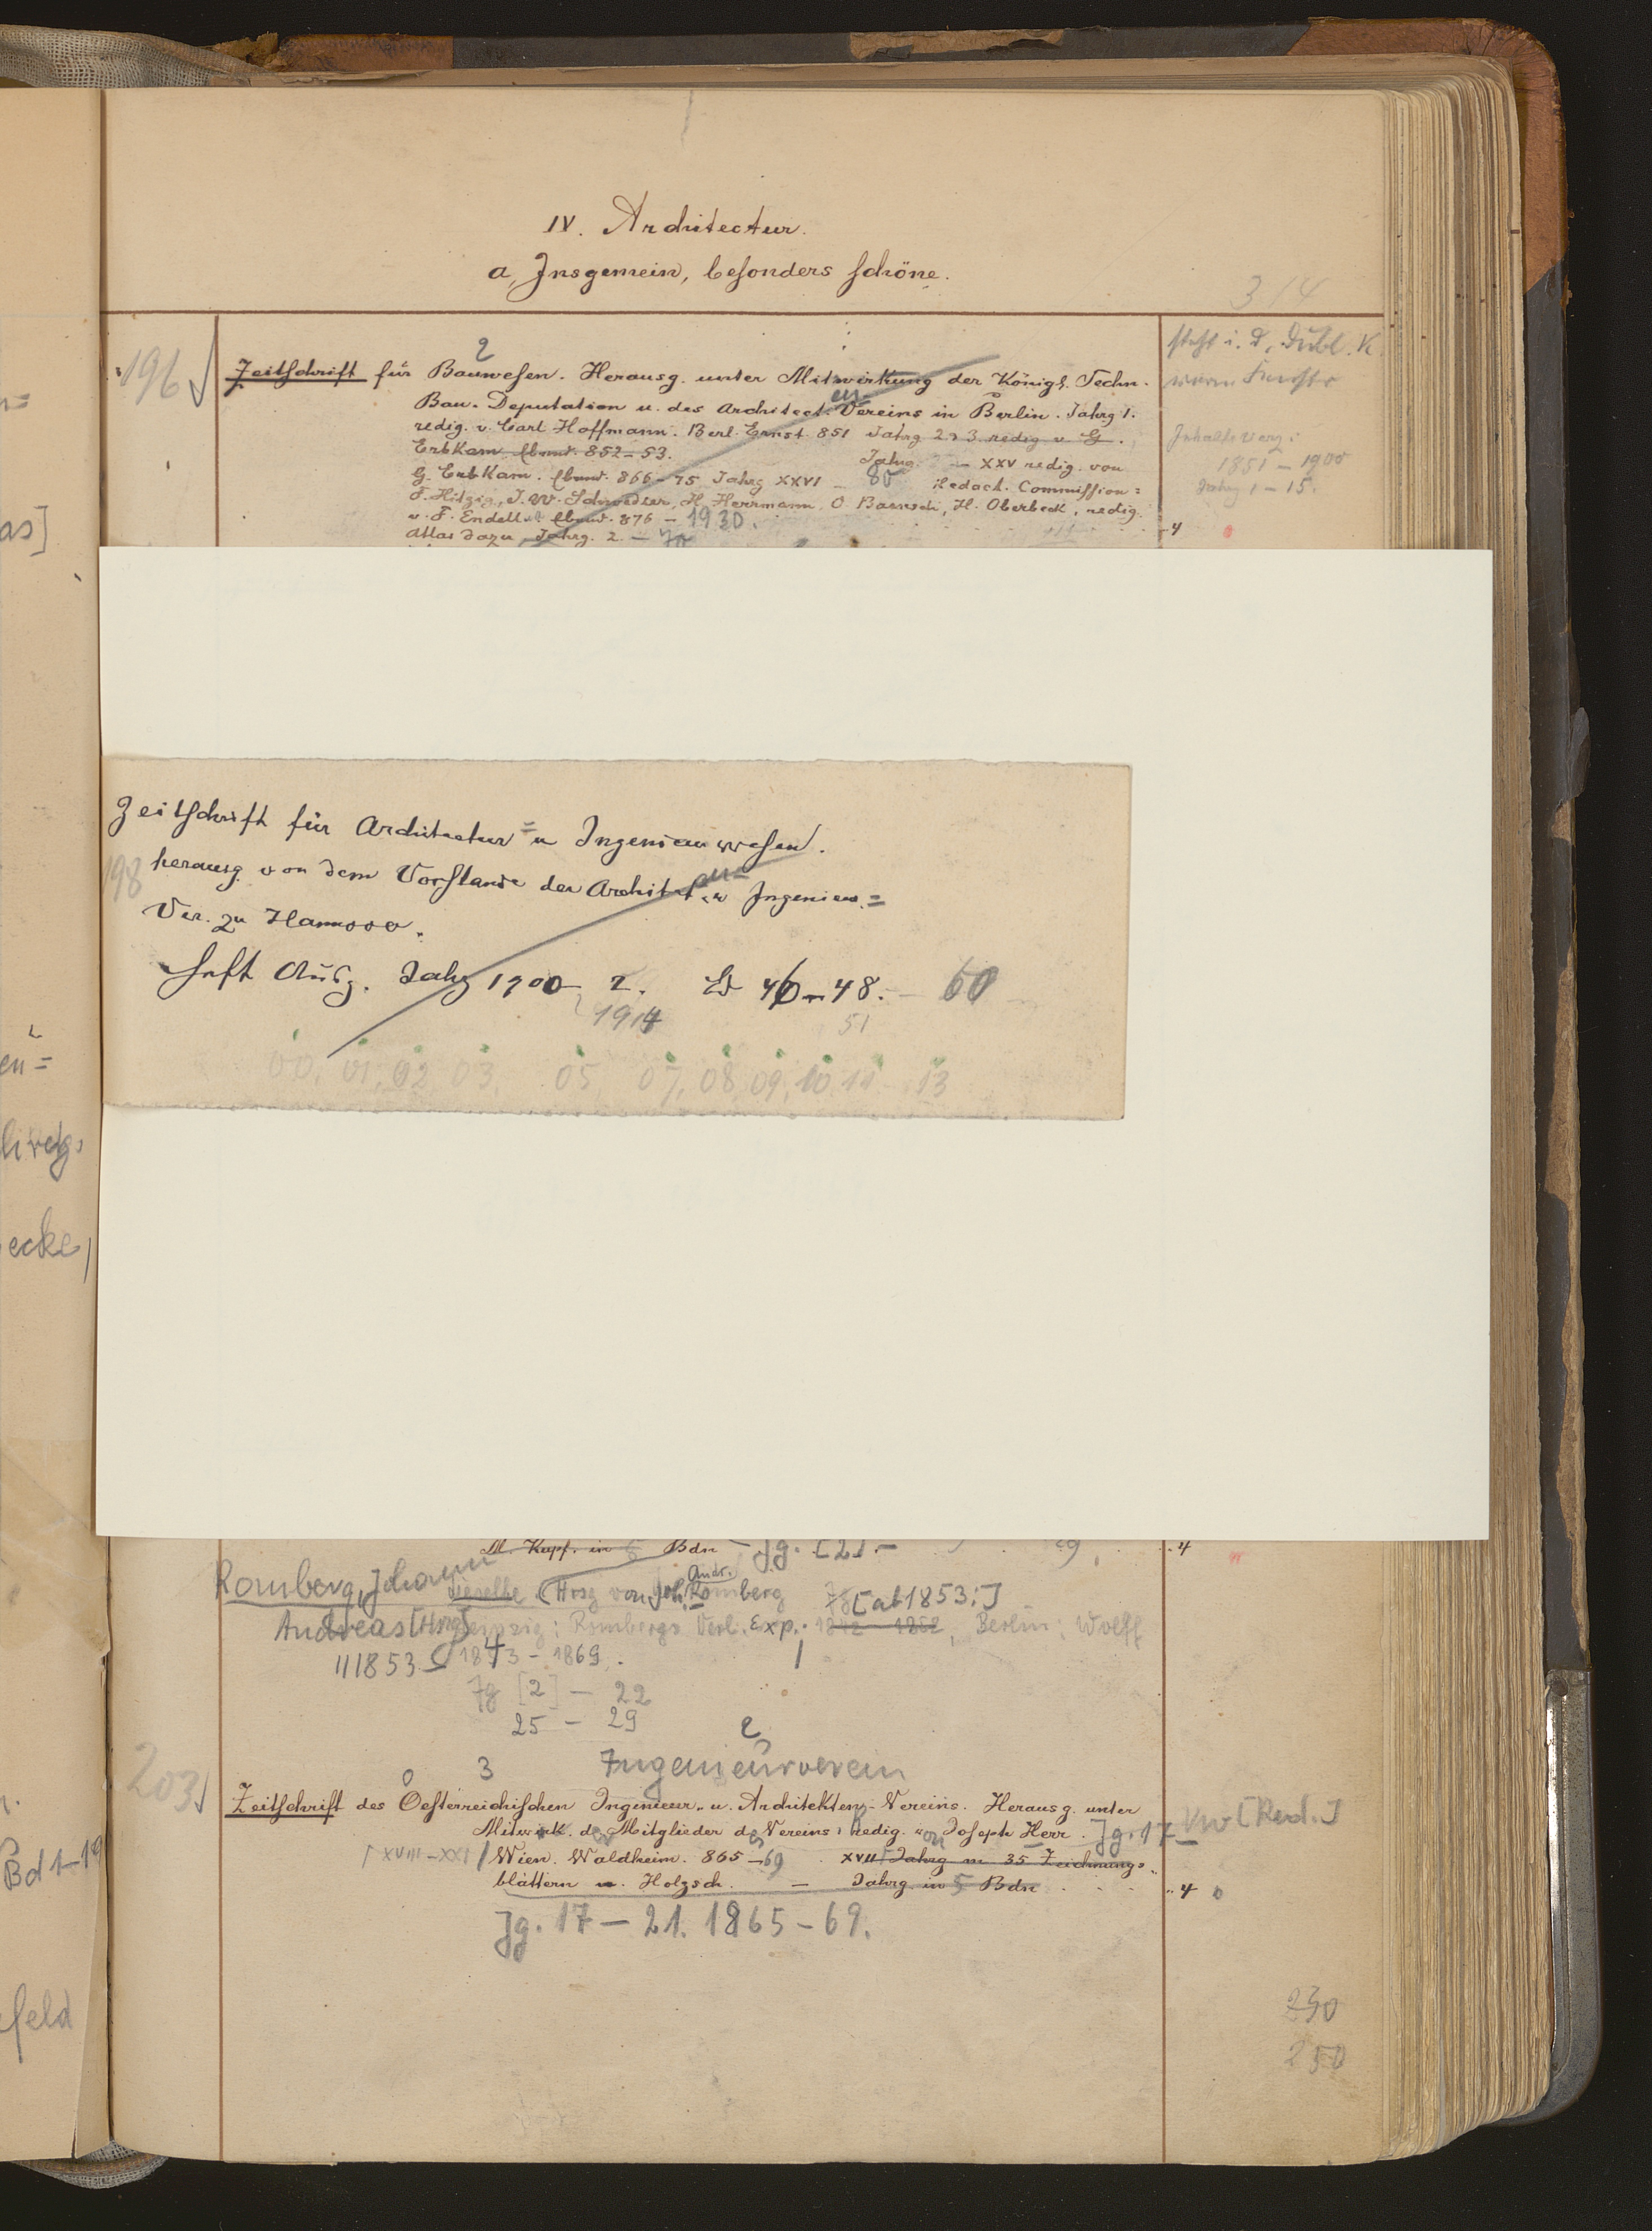 IV. Architectur.
a, Insgemein, besonders schöne.
314
196
2
Zeitschrift für Bauwesen. Herausg. unter Mitwirkung der Königl. Techn.
Bau-Deputation u. des Architect. Vereins in Berlin. Jahrg 1.
redig. v. Carl Hoffmann. Berl. Ernst. 851 Jahrg 2 3 redig v G.
Erbkam Ebend. 852-53. Jahrg. - XXV redig. von
G. Erbkam. Ebend. 866-75 Jahrg XXVI - 80 Redact. Commission:
F. Hitzig, J. W. Schwedler, H. Herrmann, O Baensch, H. Oberbeck, redig.
v. F. Endell Ebend. 876 - 1930.
Atlas dazu Jahrg. 2 - 70
4
steht i. D. Dubl. K
Inhaltsverz:
1851 - 1900
Jahrg 1 - 15.
Zeitschrift für Architectur= u Ingenieurwesen.
198
herausg von dem Vorstande der Architekten u Ingenieur=
Ver. zu Hannover.
Heft Ausg. Jahrg 1900 - 2. Bd 46-48. - 60
1914 51
00, 01, 02, 03, 05, 07, 08, 09, 10, 11 - 13
M. Kupf. in Bdn - Jg. [2]. - 29. 4
Romberg, Johann
Dieselbe. (Hrsg von Joh. Andr. Romberg [ab 1853:]
Andreas [Hrsg] Leipzig: Rombergs Verl. Exp. 1842 - 1852, Berlin: Wolff
1853 - 1869.
Jg [2] - 22
25 - 29
203
3 Ingenieurverein
Zeitschrift des Oesterreichischen Ingenieur- u. Architekten-Vereins. Herausg. unter
Mitwirk. der Mitglieder des Vereins, Redig. von Joseph Herr. Jg. 17 [Red.]
XVIII-XXI Wien. Waldheim. 865-69 XVII Jahrg m 35 Zeichnungs-
blättern u. Holzsch. - Jahrg. in 5 Bdn 4
Jg. 17 - 21. 1865 - 69.
230
250
as]
en=
ecke,
Bd 1-19
feld